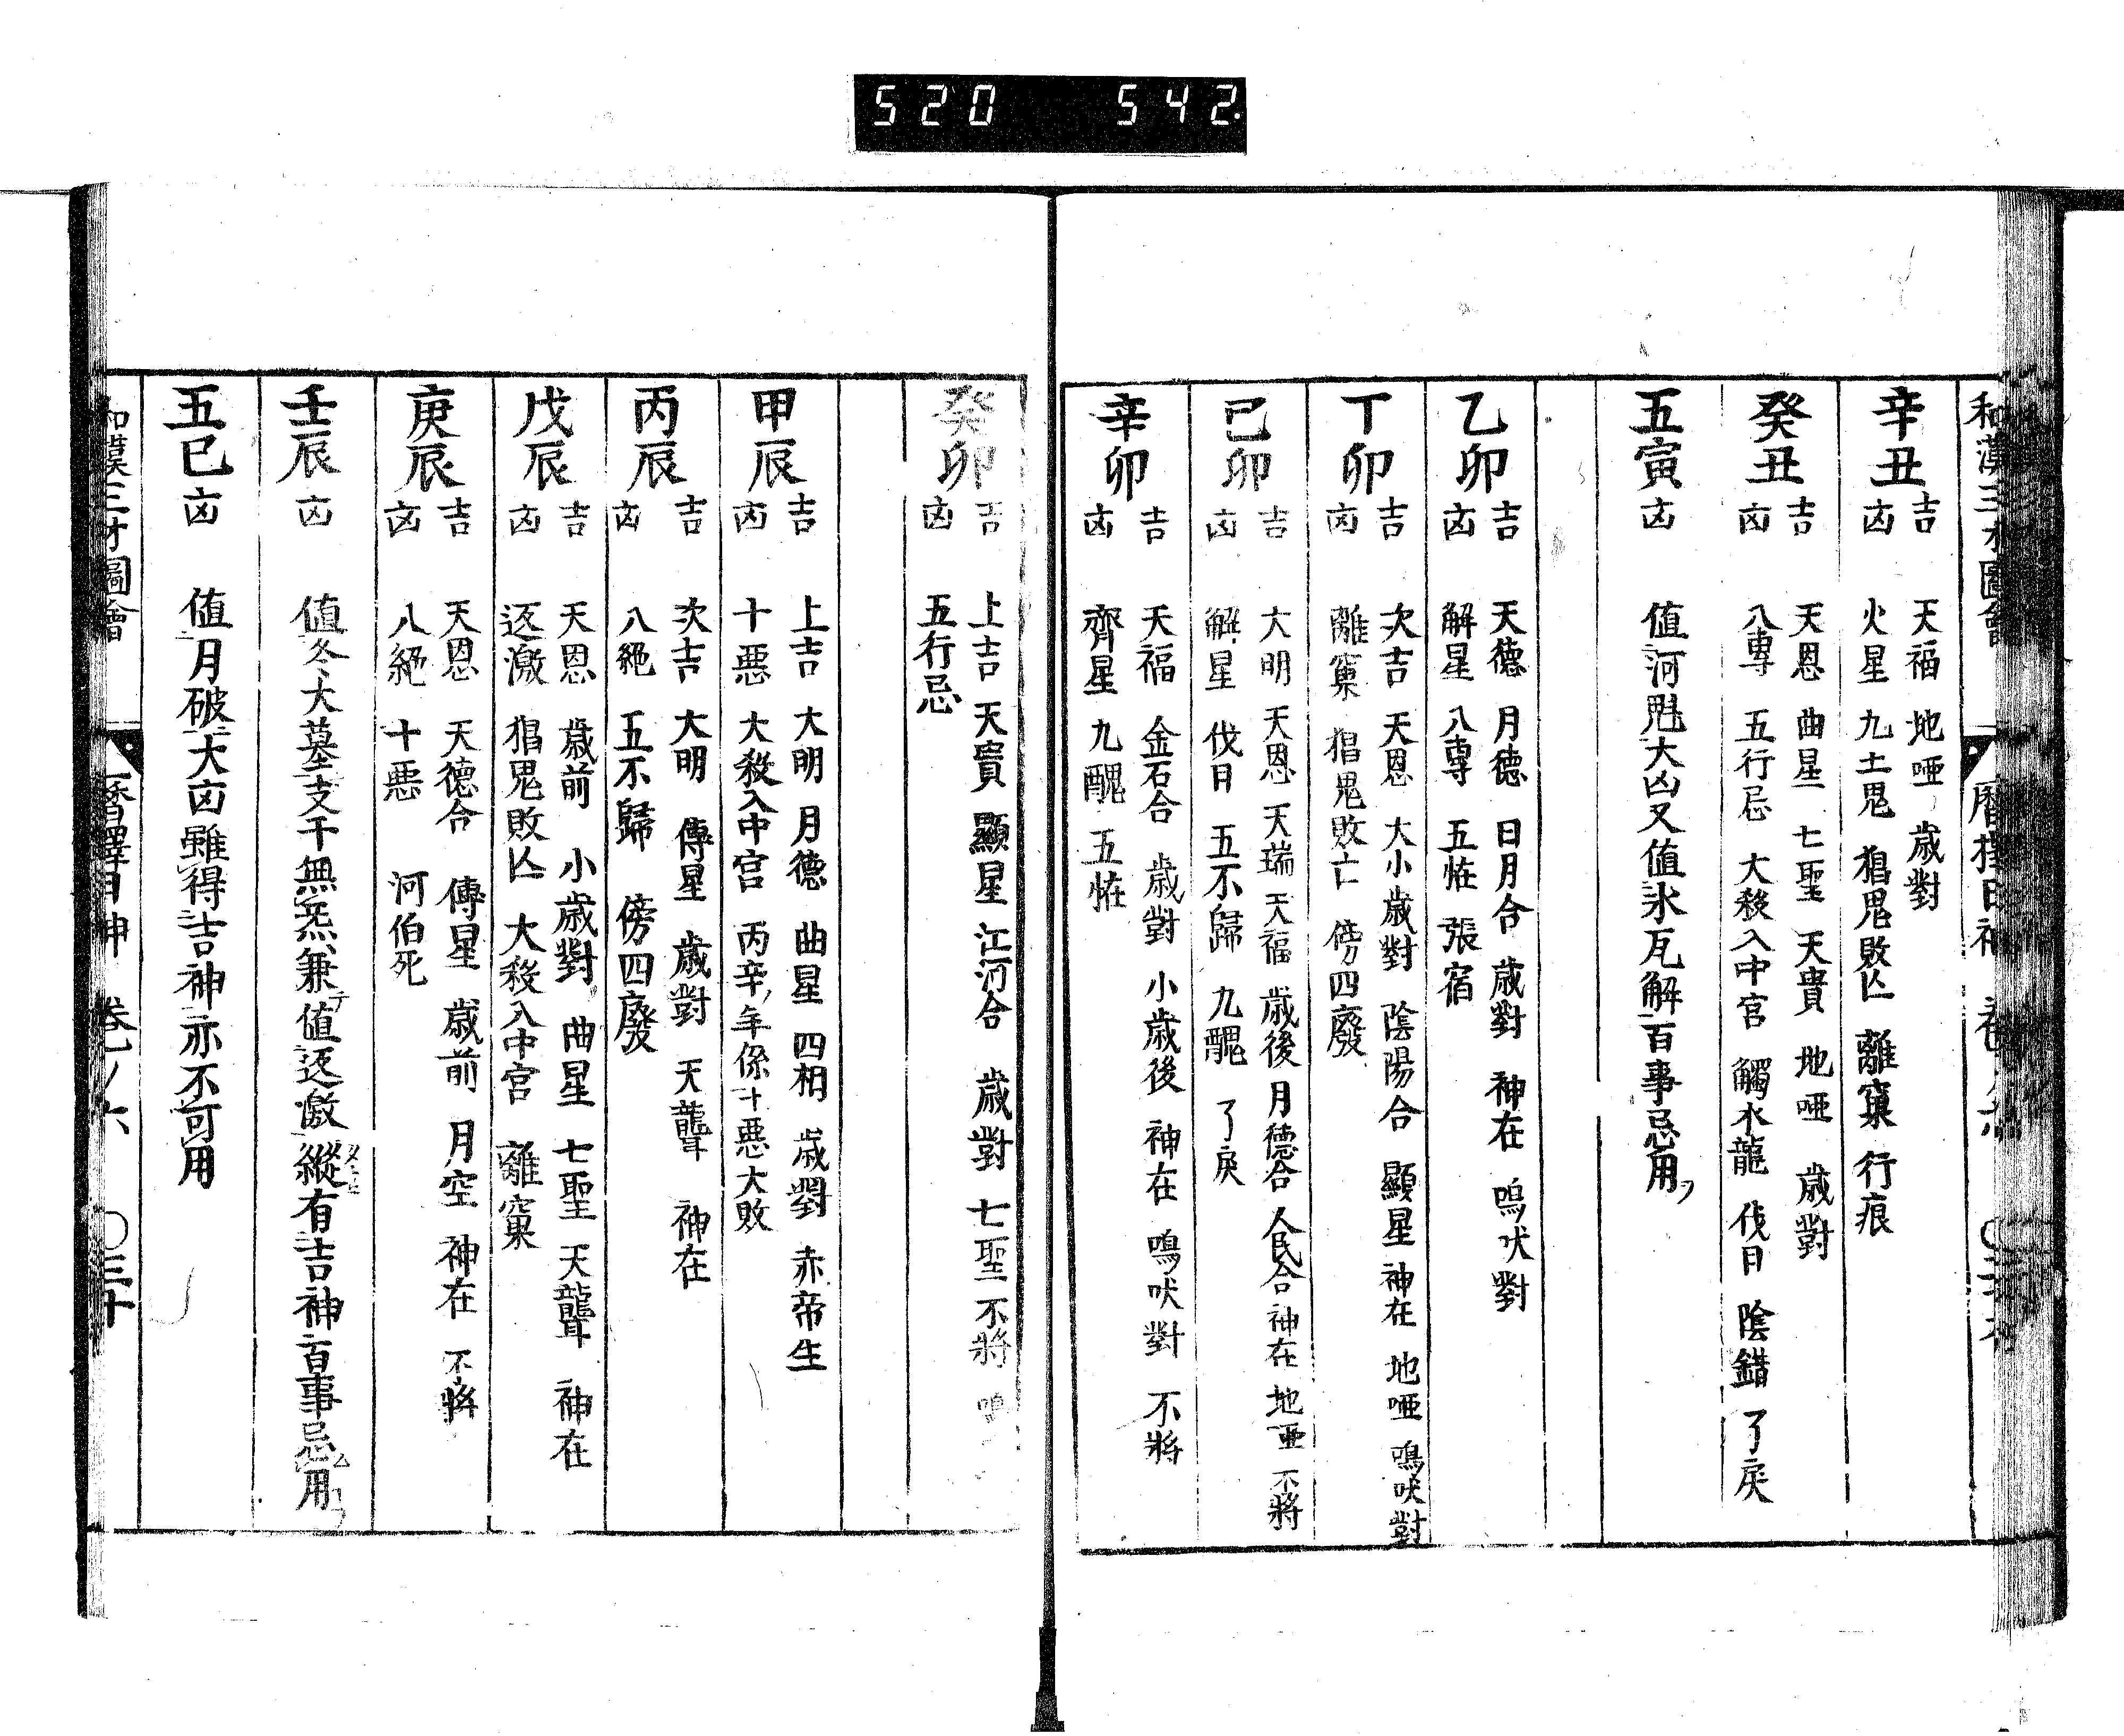 520 542
和漢三才圖會 曆擇日神
辛丑
吉 天福 地啞 歳對
凶 火星 九土鬼 猖鬼敗亡 離窠 行痕
癸丑
吉 天恩 曲星 七聖 天貴 地啞 歳對
凶 八專 五行忌 大殺入中宮 觸水龍 伐日 陰錯 了戾
五寅凶 值河魁大凶又值氷瓦解百事忌用
乙卯
吉 天德 月德 日月合 歳對 神在 鳴吠對
凶 解星 八專 五恠 張宿
丁卯
吉 次吉 天恩 大小歳對 陰陽合 顯星 神在 地啞 鳴吠對
凶 離窠 猖鬼敗亡 傍四廢
己卯
吉 大明 天恩 天瑞 天福 歳後 月德合 人民合 神在 地亜 不將
凶 解星 伐日 五不歸 九醜 了戾
辛卯
吉 天福 金石合 歳對 小歳後 神在 鳴吠對 不將
凶 齊星 九醜 五恠
癸卯
吉 上吉 天貴 顯星 江河合 歳對 七聖 不將 鳴
凶 五行忌
甲辰
吉 上吉 大明 月德 曲星 四相 歳對 赤帝生
凶 十惡 大殺入中宮 丙辛年係十惡大敗
丙辰
吉 次吉 大明 傳星 歳對 天聾 神在
凶 八絕 五不歸 傍四廢
戊辰
吉 天恩 歳前 小歳對 曲星 七聖 天聾 神在
凶 返激 猖鬼敗亡 大殺入中宮 離窠
庚辰
吉 天恩 天德合 傳星 歳前 月空 神在 不將
凶 八絕 十惡 河伯死
壬辰凶 值冬大墓支干無炁兼值返激縱有吉神百事忌用
五巳凶 值月破大凶雖得吉神亦不可用
和漢三才圖會 曆擇日神 卷ノ六 〇三十